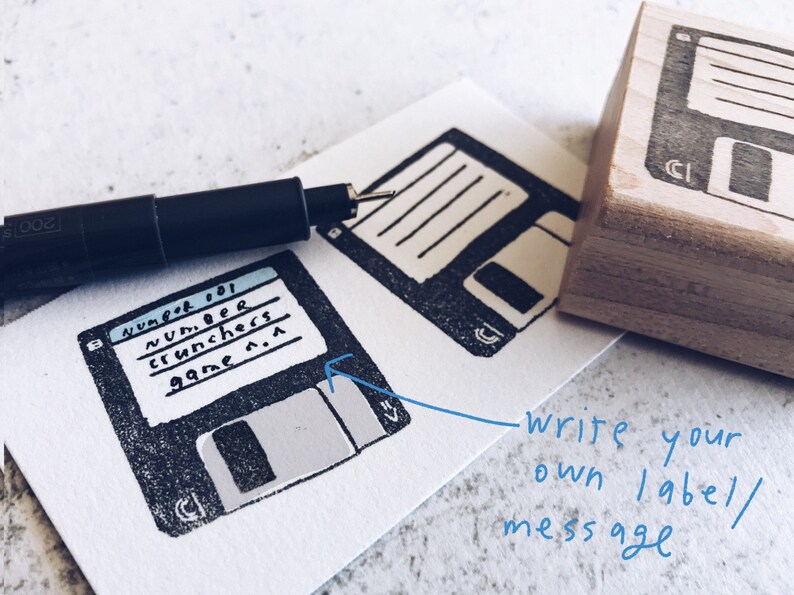 200
Number 001
number
crunchers
game ^.^
write your
own label/
message